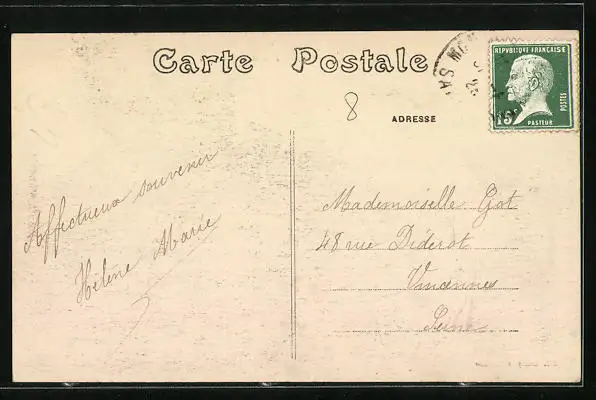 Carte Postale
8
ADRESSE
REPUBLIQUE FRANÇAISE
POSTES
15c
PASTEUR
Affectueux souvenir
Hélène Marie
Mademoiselle Got
48 rue Diderot
Vincennes
Seine